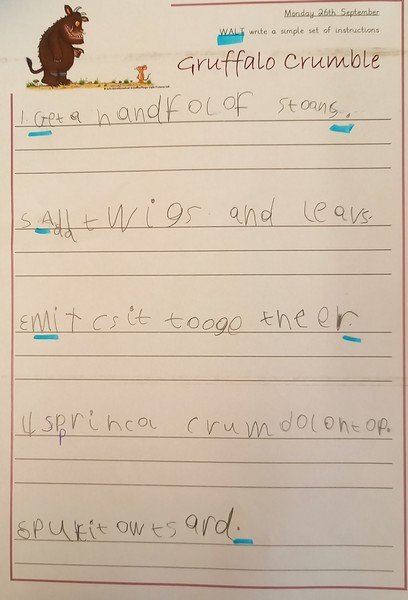 Monday 26th September
WALT write a simple set of instructions
Gruffalo Crumble
1. Get a handfolof stoans.
Add twigs and leavs.
mitcsit tooge theer.
4 sprinca crumdolontop.
pukit owtsard.